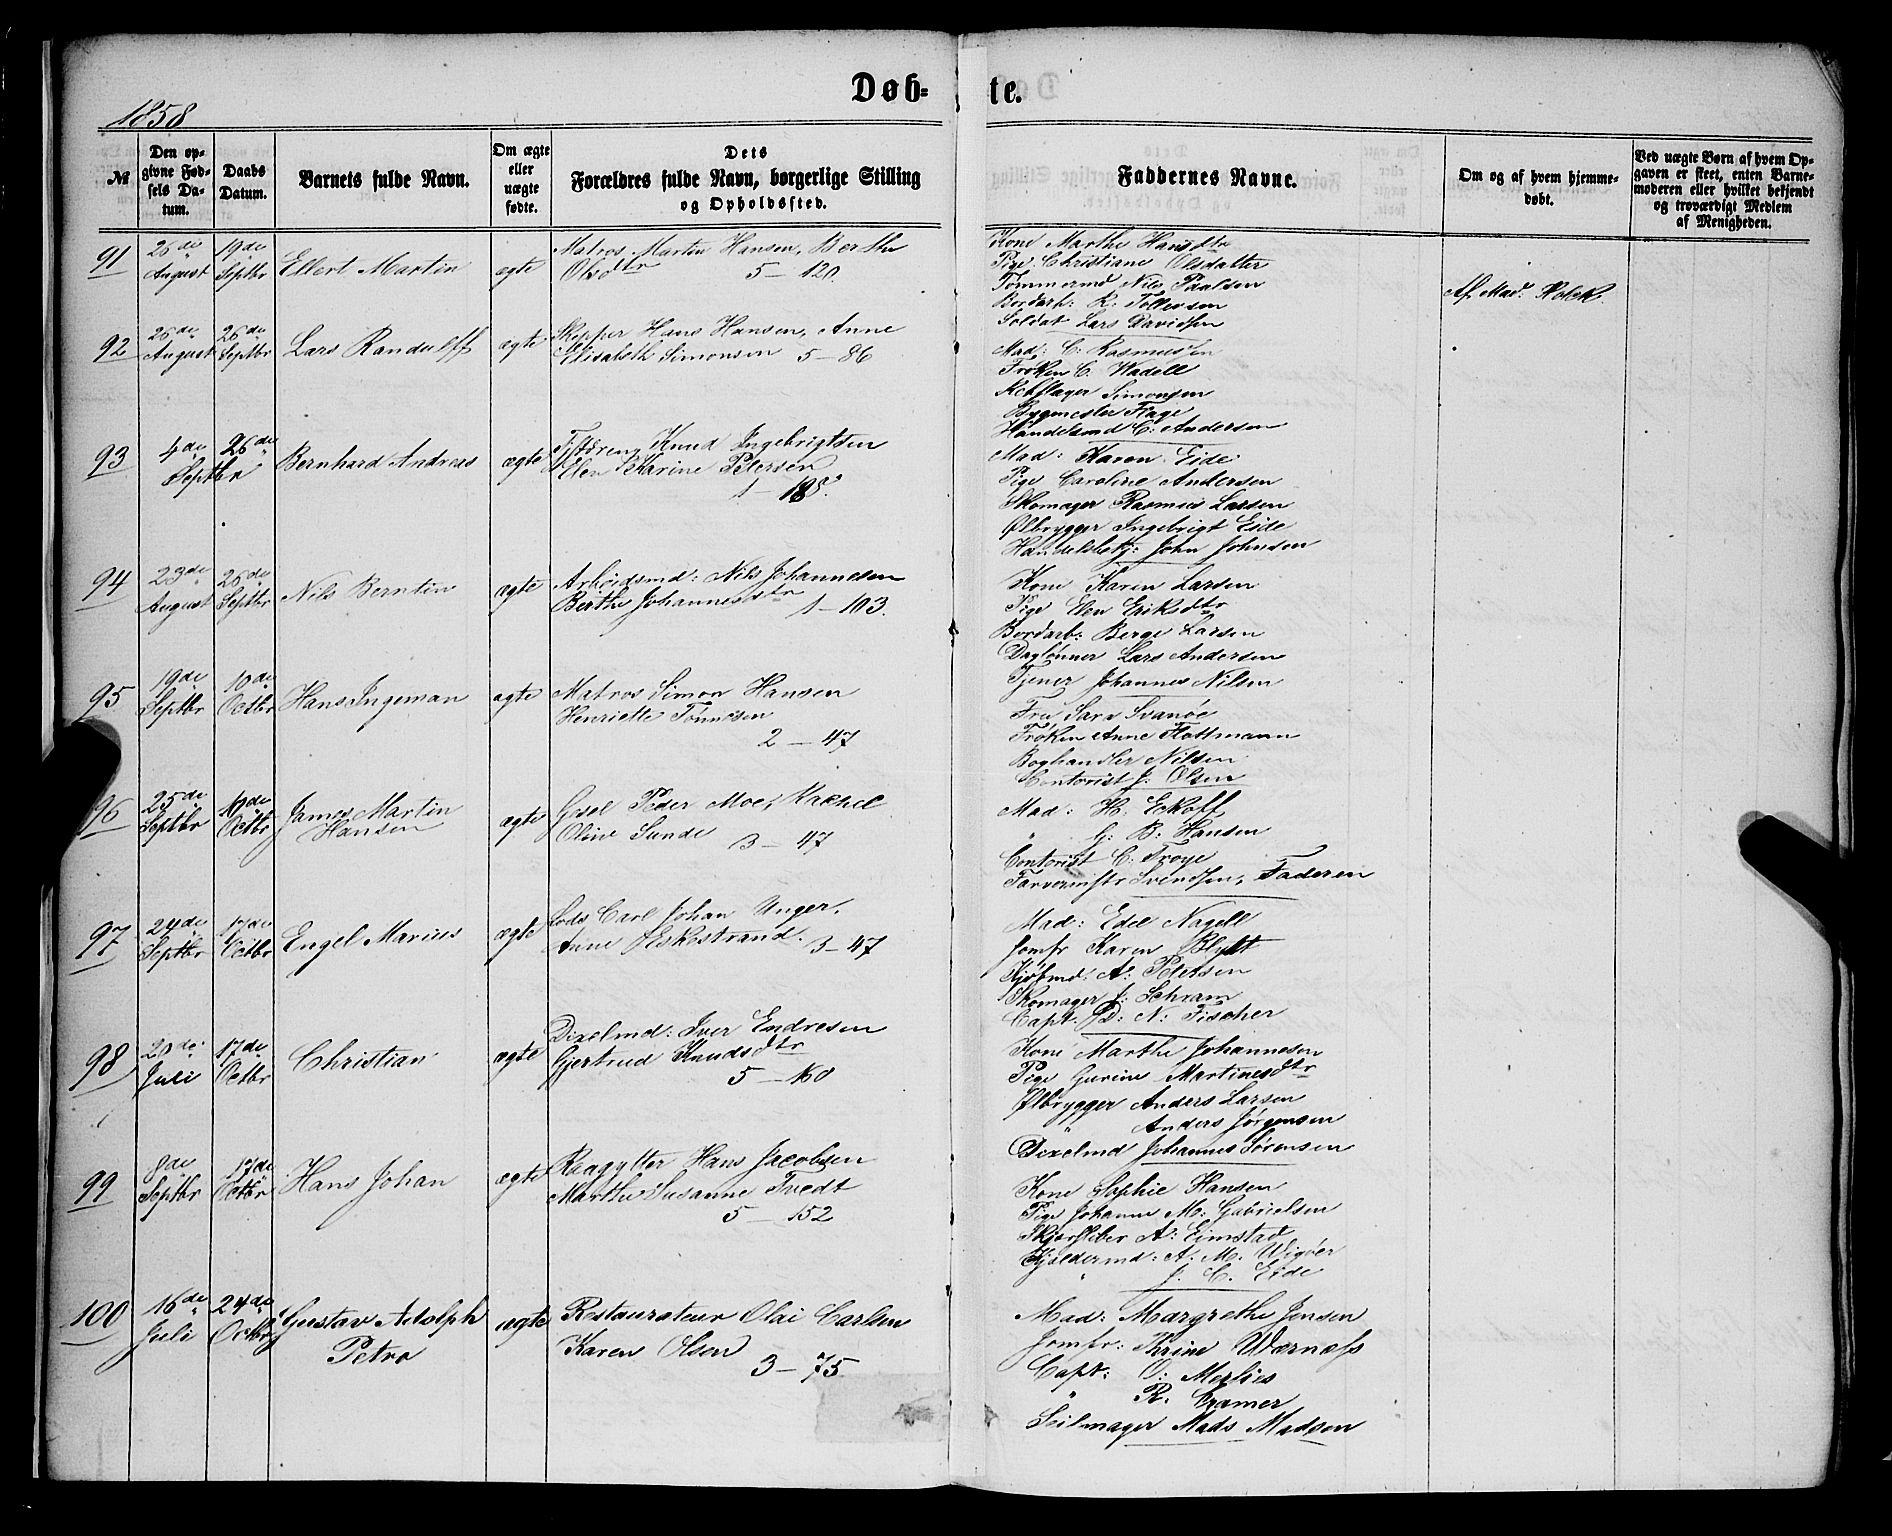 Døb-
te.
1858
№
Den op-
givne Fød-
sels Da-
tum.
Daabs
Datum.
Barnets fulde Navn.
Om ægte
eller
uægte
fødte.
Dets
Forældres fulde Navn, borgerlige Stilling
og Opholdssted.
Faddernes Navne.
Om og af hvem hjemme-
døbt.
Ved uægte Børn af hvem Op-
gaven er skeet, enten Barne-
moderen eller hvilket bekjendt
og troværdigt Medlem
af Menigheden.
91
26de August
19de Septbr
Ellert Martin
ægte
Matros Martin Hansen, Berthe
Olsdtr 5 - 120.
Kone Marthe Hansdtr
Pige Christiane Olsdatter
Tømmermd Nils Paalsen
Bordarb: R. Tollevsen
Soldat Lars Davidsen
Af Mad. Holck
92
26de August
26de Septbr
Lars Randulff
ægte
Skipper Hans Hansen, Anne
Elisabeth Simonsen 5 - 86
Mad: C. Rasmussen
Frøken C. Wadell
Rebslager Simonsen
Bygmester Flage
Handelsmd C. Andersen
93
4de Septbr
26de
Bernhard Andreas
ægte
Knud Ingebrigtsen
Elen Karine Petersen
Mad: Karen Eide
Pige Caroline Andersen
Skomager Rasmus Larsen
Ølbrygger Ingebrigt Eide
Handelsbetj: John Johnsen
94
23de August
26de Septbr
Nils Berntin
ægte
Arbeidsmd: Nils Johannesen
Berthe Johannesdtr 1 - 103.
Kone Karen Larsen
Pige Elen Eriksdtr
Bordarb: Berge Larsen
Daglønner Lars Andersen
Tjener Johannes Nilsen
95
19de Septbr
10de Octbr
Hans Ingeman
ægte
Matros Simon Hansen
Henriette Tønnesen
2 - 47
Fru Sara Svanøe
Frøken Anne Flottmann
Boghandler Nilsen
Contorist J. Olsen
96
25de Septbr
Octbr
James Martin
Hansen
ægte
Peder Moe, Rachel
Oline Sunde 3 - 47
Mad: H. Eckoff
" G. B. Hansen
Contorist C. Troye
Farvermstr Svendsen, Faderen
97
24de Septbr
17de Octbr
Engel Marius
ægte
Lods Carl Johan Unger,
Anne Eskestrand. 3 - 47
Mad: Edel Nagell
Jomfr Karen Blytt
Kjøbmd: A. Petersen
Skomager J: Schram
Capt. P: N. Fischer
98
20de Juli
17de Octbr
Christian
ægte
Dixelmd: Iver Endresen
Gjertrud Knudsdtr
5 - 160
Kone Marthe Johannesen
Pige Gurine Martinesdtr
Ølbrygger Anders Larsen
" Anders Jørgensen
Dixelmd Johannes Sørensen
99
8de Septbr
17de Octbr
Hans Johan
ægte
Hans Jacobsen
Marthe Susanne Tvedt
5 - 152
Kone Sophie Hansen
Pige Johanne M. Gabrielsen
A: Eimstad
Kjeldermd: A. M. Wigøer
" J. C. Eide
100
16de Juli
24de Octbr
Gustav Adolph
Petro
ægte
Restaurateur Olai Carlsen
Karen Olsen 3 - 75
Mad: Margrethe Jensen
Jomfr: Thrine Wærnæss
Capt: O: Merlies
" R. Cramer
Seilmager Mads Madsen